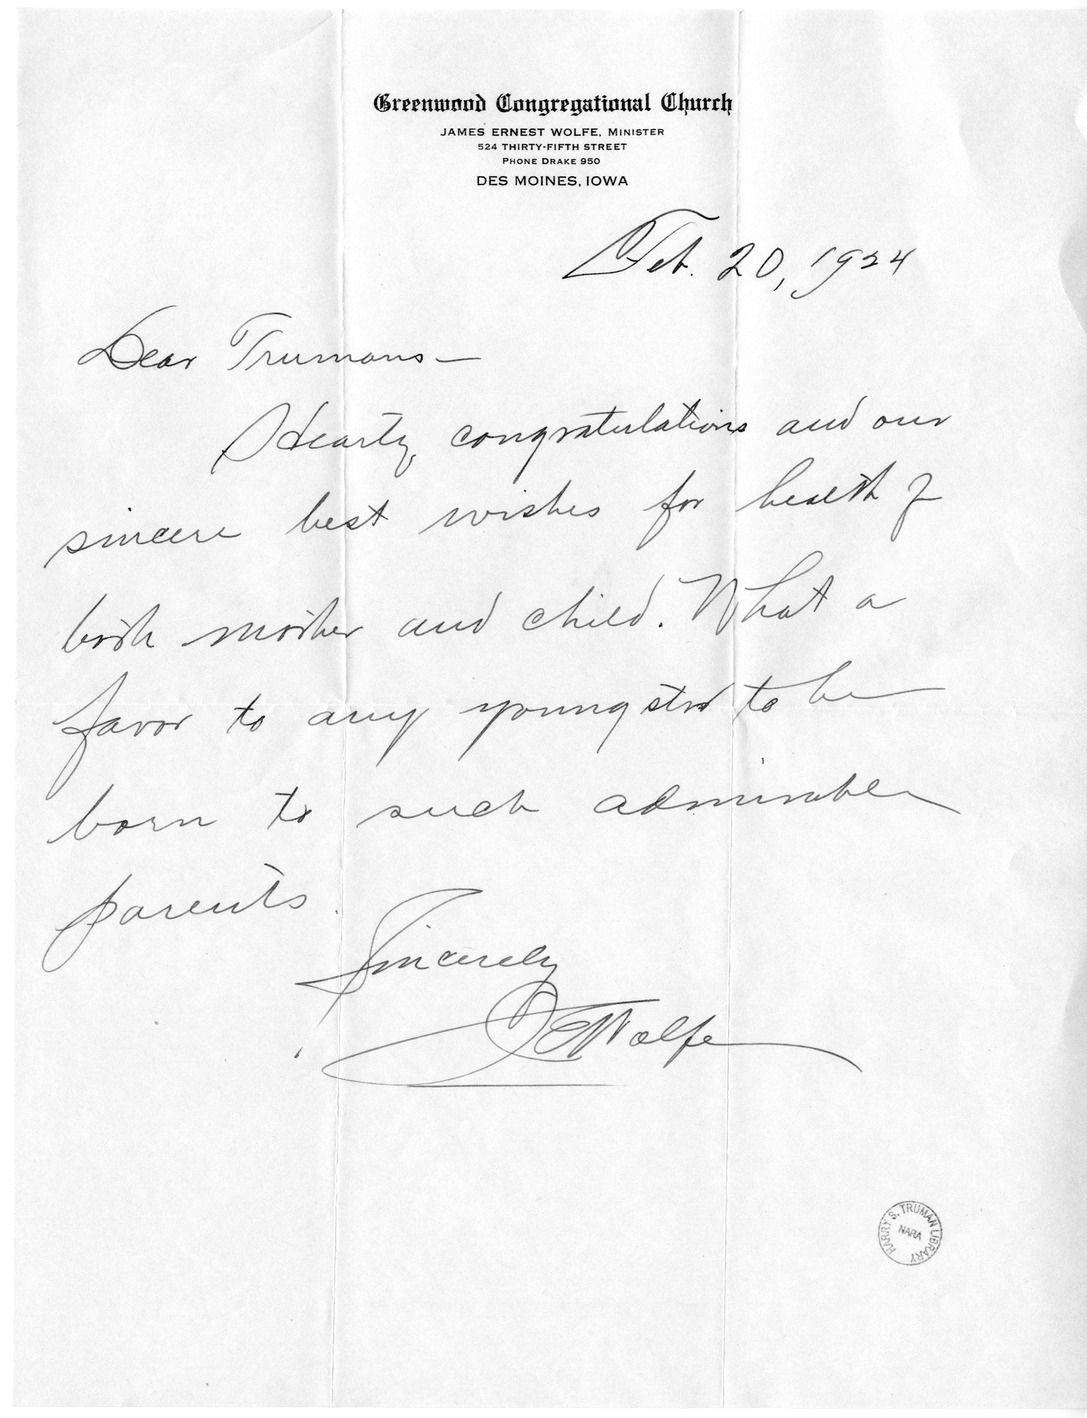 Greenwood Congregational Church
JAMES ERNEST WOLFE, MINISTER
524 THIRTY-FIFTH STREET
PHONE DRAKE 950
DES MOINES, IOWA
Feb. 20, 1924
Dear Trumans—
Hearty congratulations and our
sincere best wishes for health of
both mother and child. What a
favor to any youngster to be
born to such admirable
parents.
Sincerely
JEWolfe
HARRY S. TRUMAN LIBRARY
NARA